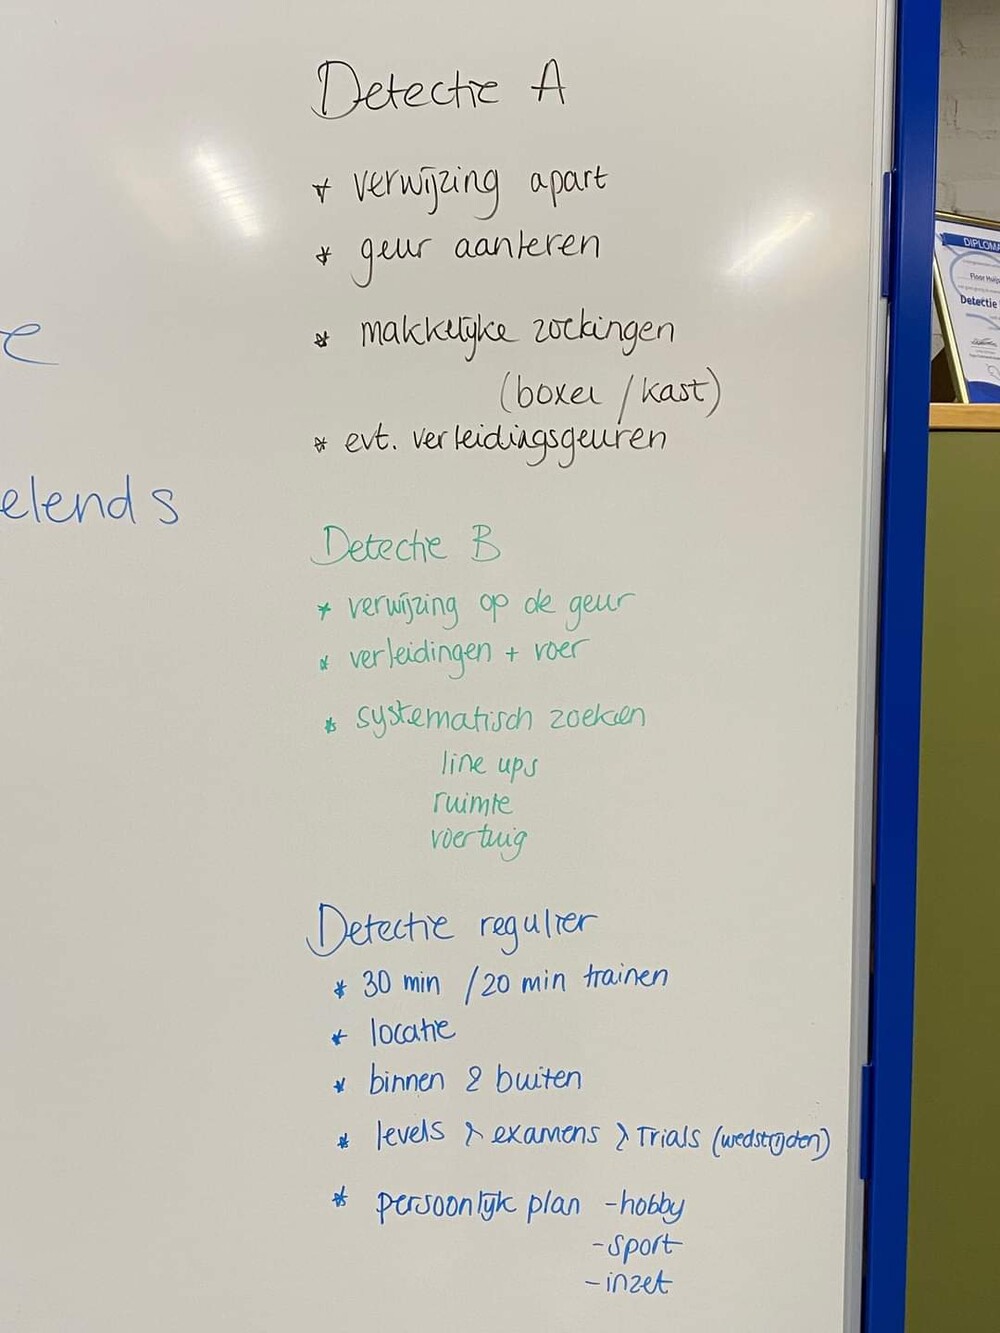 Detectie A
* verwijzing apart
* geur aanleren
* makkelijke zoekingen
(boxen / kast)
* evt. verleidingsgeuren
elends
Detectie B
* verwijzing op de geur
* verleidingen + voer
* systematisch zoeken
line ups
ruimte
voertuig
Detectie regulier
* 30 min / 20 min trainen
* locatie
* binnen & buiten
* levels > examens > Trials (wedstrijden)
* persoonlijk plan - hobby
- sport
- inzet
DIPLOMA
Detectie